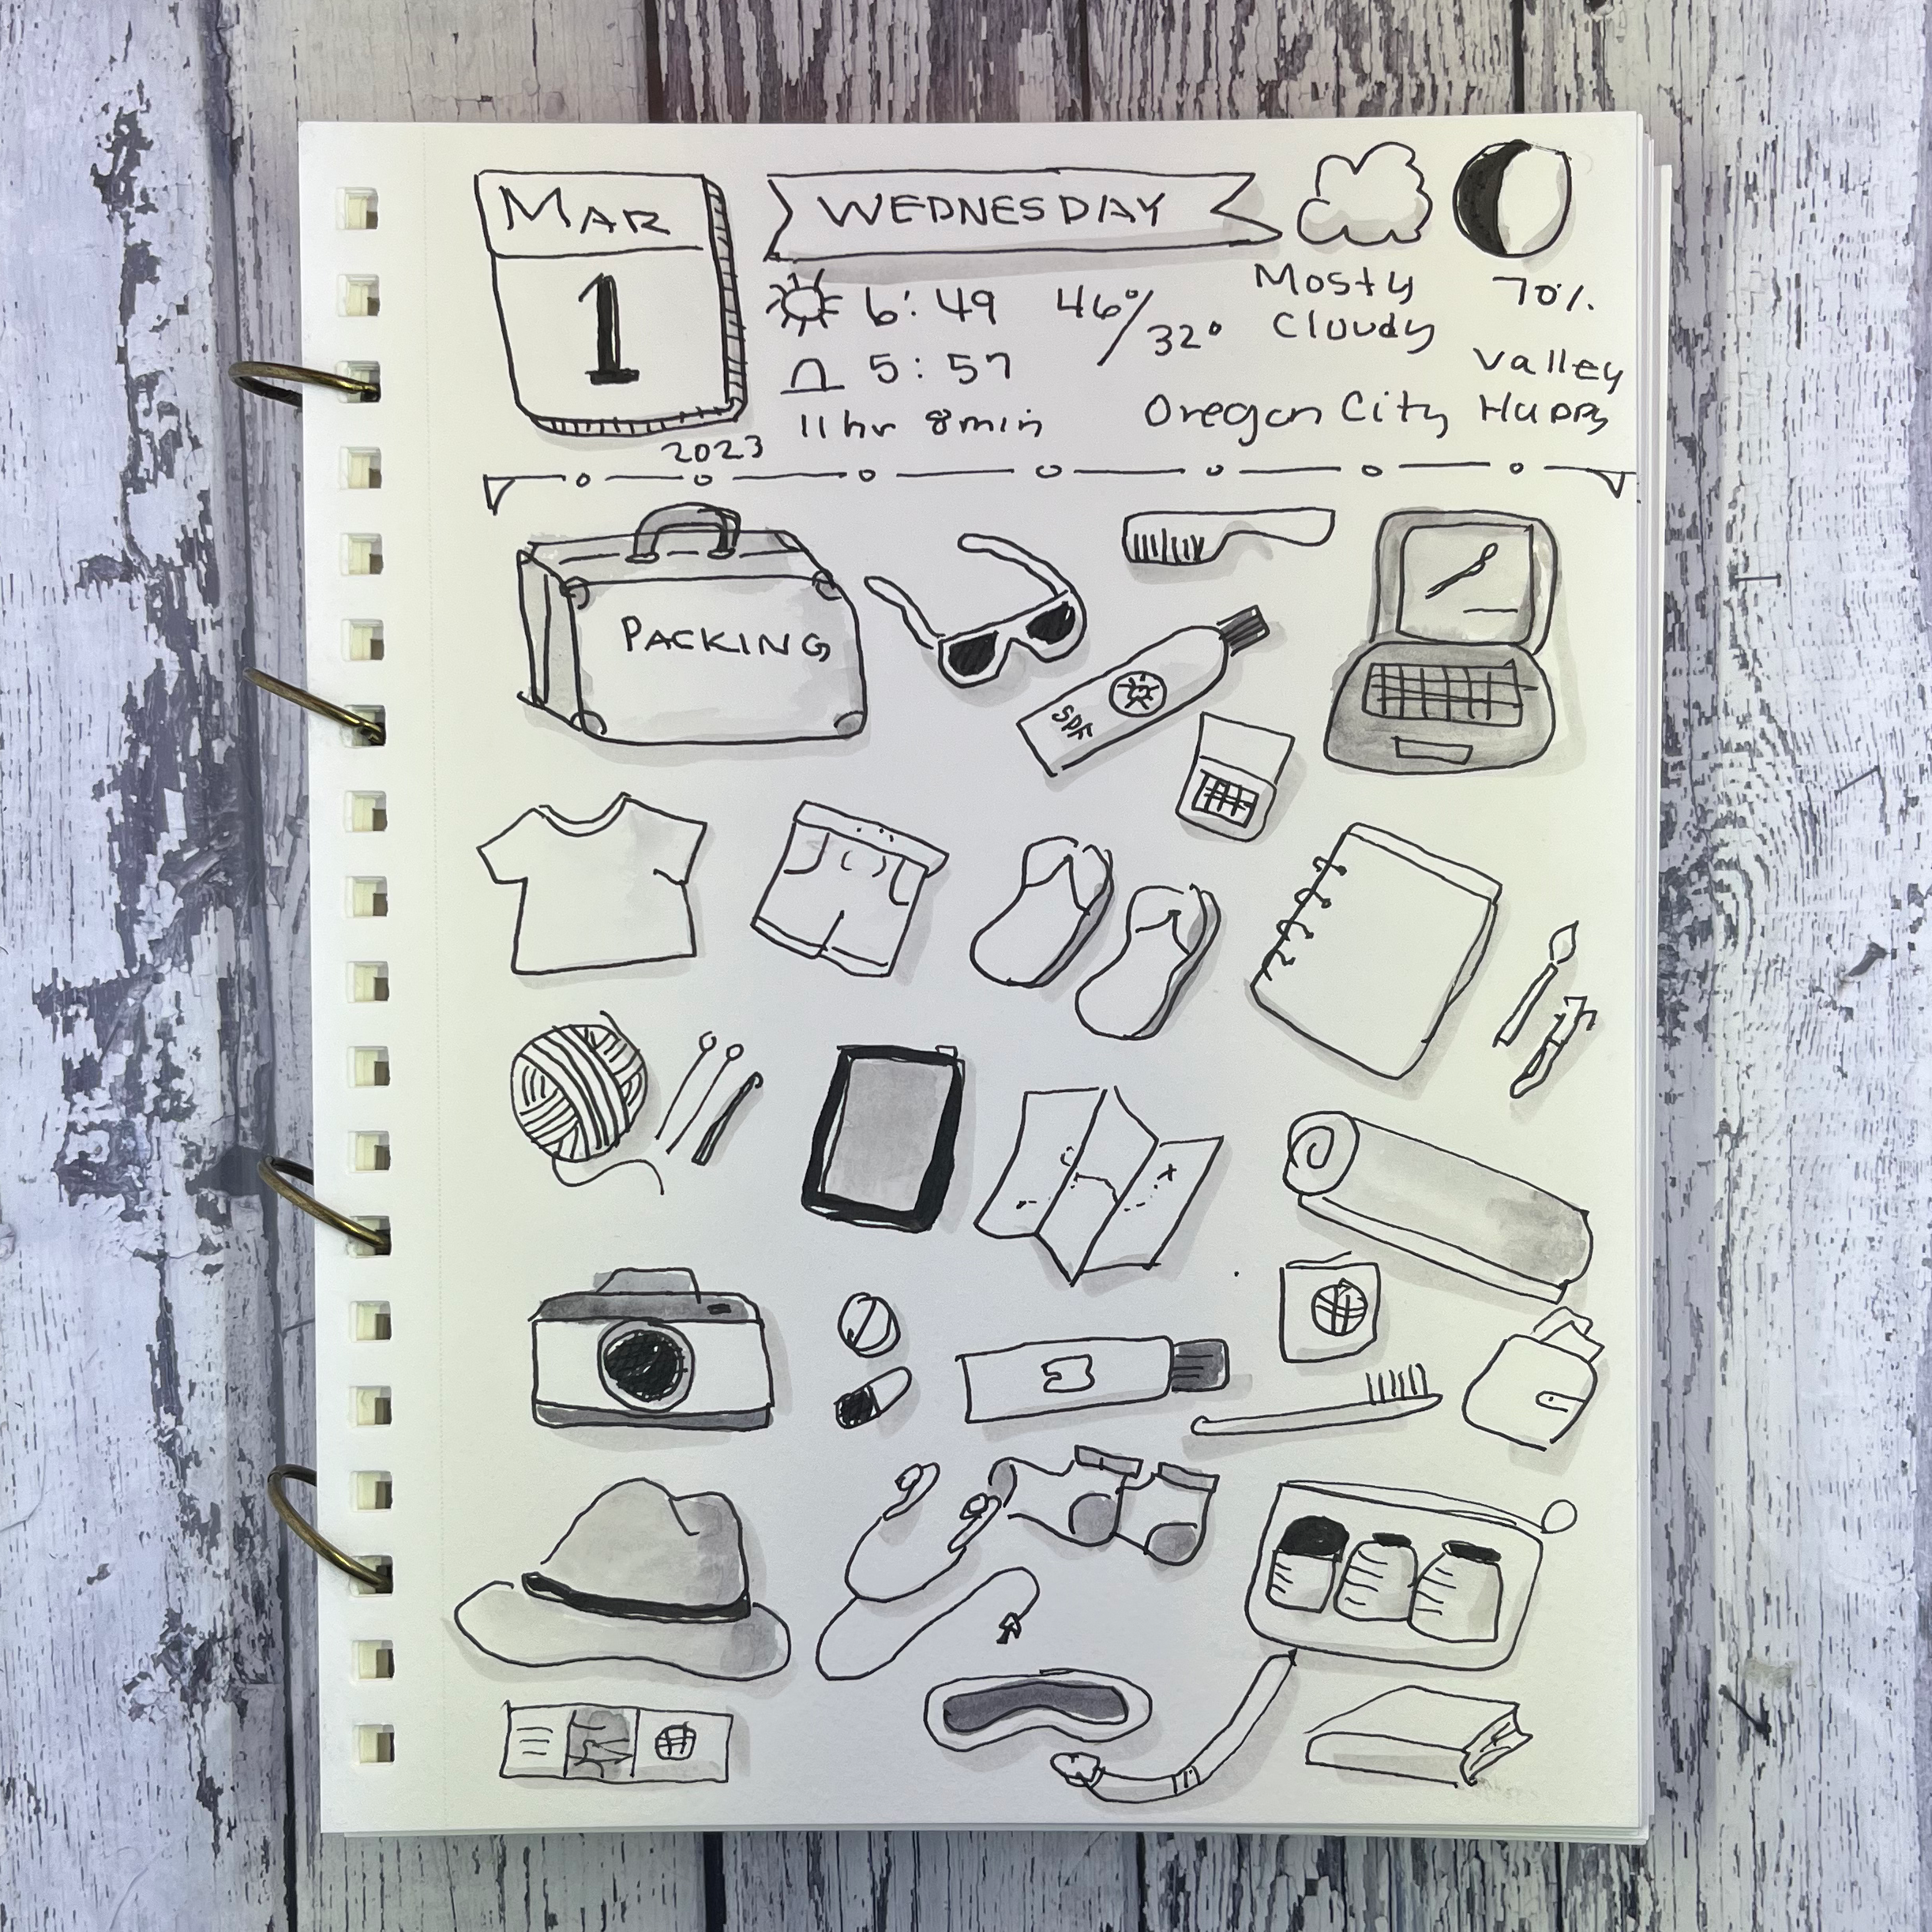 MAR
1
2023
WEDNESDAY
6:49
5:57
11hr 8min
46°/32°
Mosty
Cloudy
70%
Valley
Oregon City Happy
PACKING
SPF